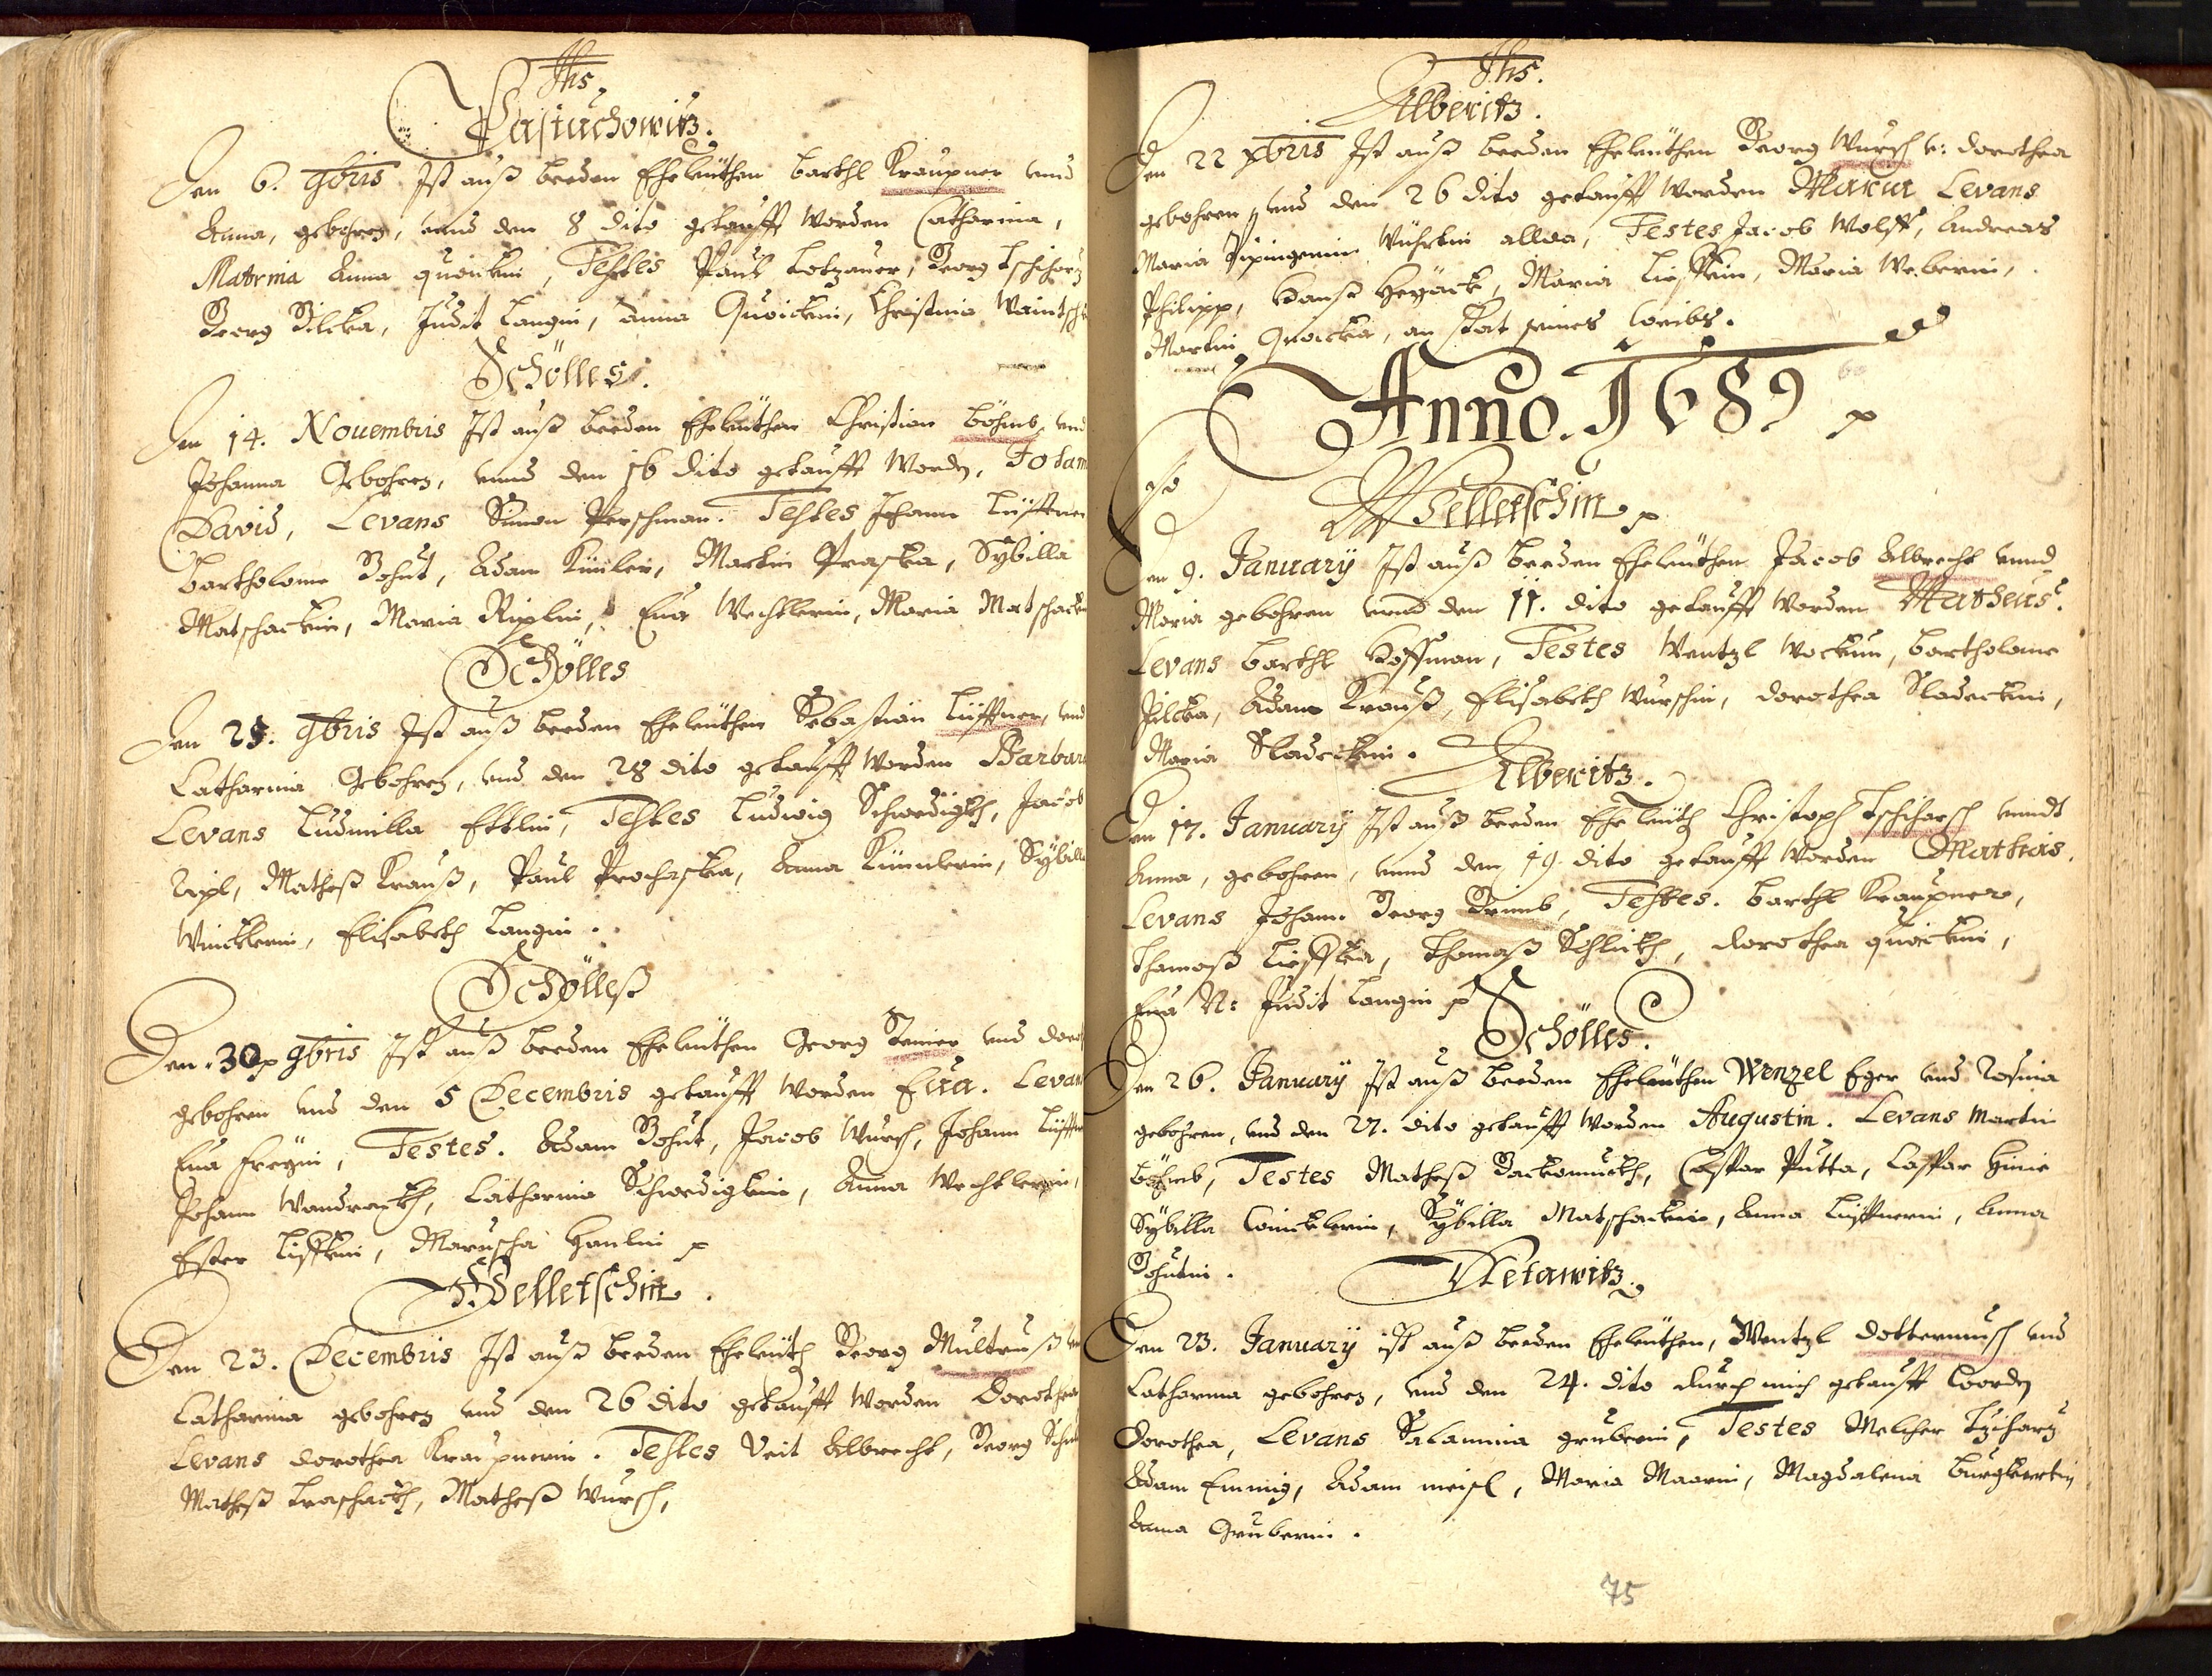 Jhs.
Pastuchowitz.
Den 6. 9bris Ist auß beeden Eheleüthen Barthl Kraupner vnd
Anna, gebohrn, vnnd den 8 dito getaufft worden Catharina,
Matrina Anna quoickin, Testes Paul Lotzauer, Georg Tschihartz
Georg Pilcka, Judit Langin, Anna Quoickin, Christina
Schölles.
Den 14. Nouembris Ist auß beeden Eheleüthen Christian Böhmb, vnd
Johanna Gebohrn, vnnd den 16 dito getaufft wordn, Johan
David, Levans Simon Perschman. Testes Johann Lüfftner
Bartholome Bohut, Adam Kimler, Martin Praska, Sybilla
Matschackin, Maria Riplin, Eua Wechtlerin, Maria Matschackin
Schölles
Den 25. 9bris Ist auß beeden Eheleüthen Sebastian Lüfftner, vnd
Catharina Gebohrn, vnd den 28 dito getaufft worden Barbara
Levans Ludmilla Ettlin, Testes Ludwig Schwedigkh, Jacob
Ripl, Matheß Krauß, Paul Prochaska, Anna Kümlerin, Sybilla
Wincklerin, Elisabeth Langin.
Schölleß
Den 30 9bris Ist auß beeden Eheleüthen Georg Steiner vnd Doro
gebohrn vnd den 5 Decembris getaufft worden Eua. Levans
Eua Fregin, Testes. Adam Bohut, Jacob Wursch, Johann Lüfftner
Johann Wondrackh, Catharina Schwedigkin, Anna Wechtlerin,
Ester Lisskin, Maruscha Hanlin
Welletschin.
Den 23. Decembris Ist auß beeden Eheleüth Georg Multrus vnd
Catharina gebohrn vnd den 26 dito getaufft worden Dorothea
Levans Dorothea Kraupnerin. Testes Veit Albrecht, Georg
Matheß Traschackh, Matheß Wursch,
Jhs.
Alberitz.
Den 22 xbris Ist auß beeden Eheleüthen Georg Wursch v: Dorothea
gebohren, vnd den 26 dito getaufft worden Maria Levans
Maria Würthin allda, Testes Jacob Wolff, Andreas
Philipp, Hanß Hegäck, Maria Liesskin, Maria Weberin,
Martin Quoicka, an stat seines Weibs.
Anno. 1689
Welletschin
Den 9. January Ist auß beeden Eheleüthen Jacob Albrecht vnnd
Maria gebohren vnnd den 11. dito getaufft worden Matheus.
Levans Barthl Hoffman, Testes Wentzl Wockun, Bartholome
Pilcka, Adam Krauß, Elisabeth Wurschin, Dorothea Sladeckin,
Maria Sladeckin.
Alberitz.
Den 17. January Ist auß beeden Eheleüth Christoph Tschihasch vnndt
Anna, gebohren, vnnd den 19. dito getaufft worden Mathias.
Levans Johann Georg Brimb, Testes. Barthl Kraupner,
Thomaß Liesska, Thomaß Schlickh, Dorothea quoickin,
Eua N: Judit Langin
Schölles.
Den 26. January Ist auß beeden Eheleüthen Wenzel Eger vnd Rosina
gebohren, vnd den 27. dito getaufft worden Augustin. Levans Martin
Böhmb, Testes Matheß Dackomuckh, Caspar Putta, Caspar Hinie
Sybilla Wincklerin, Sybilla Matschackin, Anna Lüfftnerin, Anna
Bohutin.
Netawitz.
Den 23. January ist auß beeden Eheleüthen, Wentzl Dottermusch vnd
Catharina gebohrn, vnd den 24. dito durch mich getaufft wordn
Dorothea, Levans Salamina Gruberin, Testes Melcher Tzihartz
Adam Emmig, Adam Meisl, Maria Maarin, Magdalena Burghertin
Anna Gruberin.
75